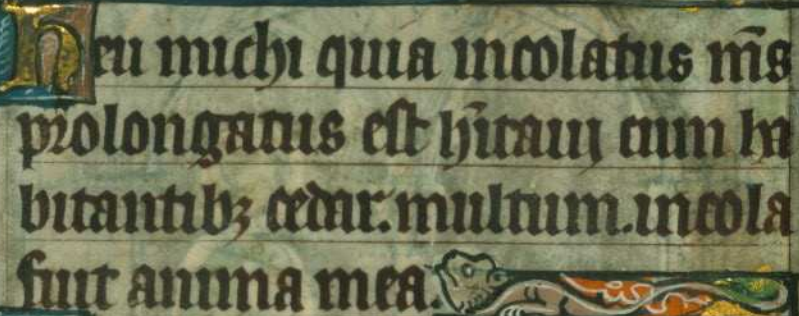 Heu michi quia incolatus m̄s
prolongatus est h̄itauj cum ha
bitantibꝫ cedar. multum. incola
fuit anima mea.